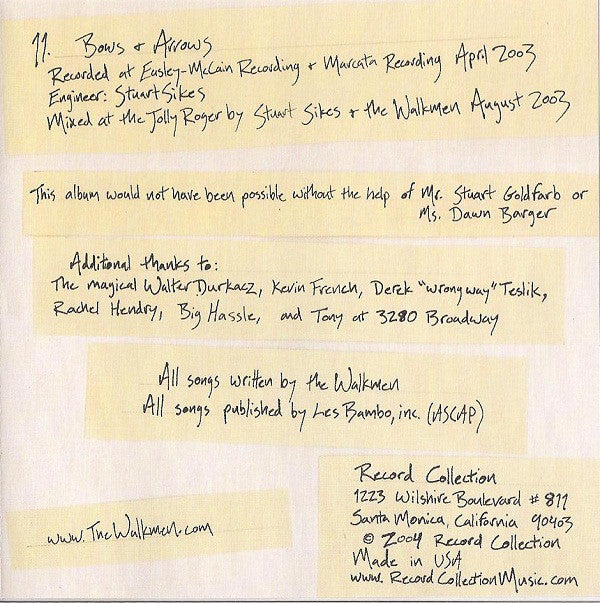 11. Bows & Arrows
Recorded at Easley-McCain Recording & Marcata Recording April 2003
Engineer: Stuart Sikes
Mixed at the Jolly Roger by Stuart Sikes & the Walkmen August 2003
This album would not have been possible without the help of Mr. Stuart Goldfarb or
Ms. Dawn Barger
Additional thanks to:
The magical Walter Durkacz, Kevin French, Derek "wrong way" Teslik,
Rachel Hendry, Big Hassle, and Tony at 3280 Broadway
All songs written by the Walkmen
All songs published by Les Bambo, inc. (ASCAP)
Record Collection
1223 Wilshire Boulevard # 811
Santa Monica, California 90403
© 2004 Record Collection
Made in USA
www.RecordCollectionMusic.com
www.TheWalkmen.com